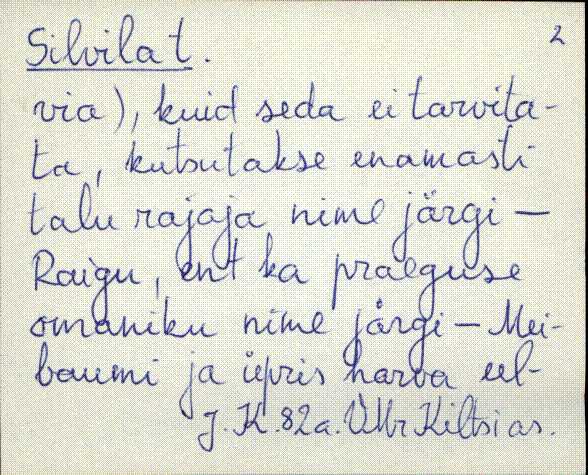 Silvila t. 2
via), kuid seda ei tarvita-
ta, kutsutakse enamasti
talu rajaja nime järgi —
Raigu, ent ka praeguse
omaniku nime järgi — Mei-
baumi ja üpris harva eel-
J. K. 82a. VMr Kiltsi as.